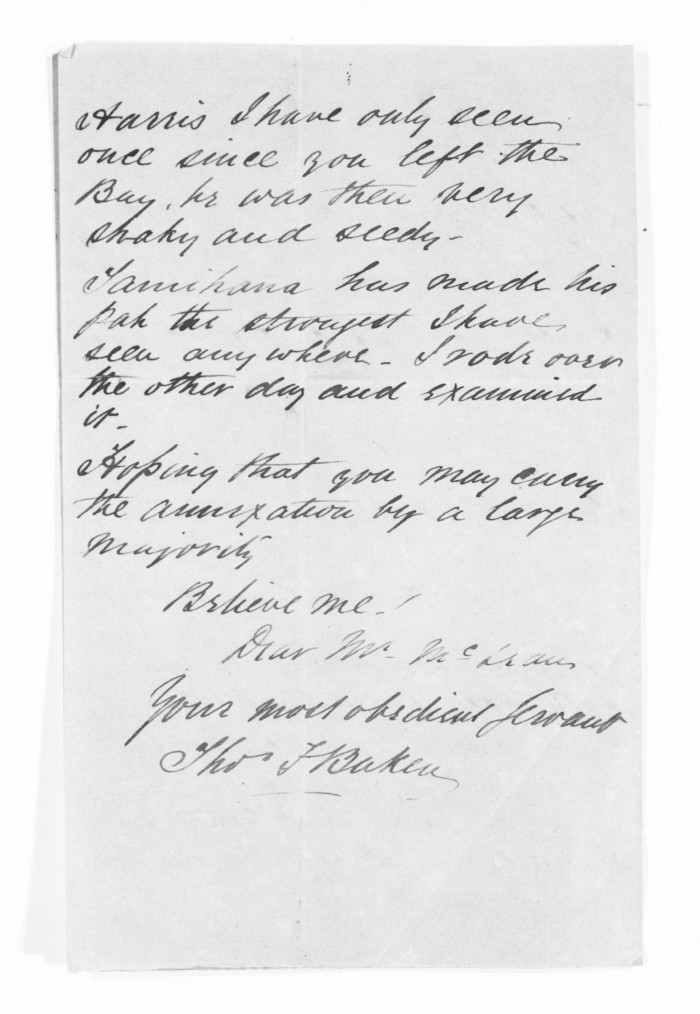 Harris I have only seen
once since you left the
Bay, he was then very
shaky and seedy -
Tamihana has made his
pah the strongest I have
seen anywhere - I rode over
the other day and examined
it -
Hoping that you may carry
the annexation by a large
majority
Believe me -
Dear Mr. McLean
Your most obedient Servant
Thos F Baker